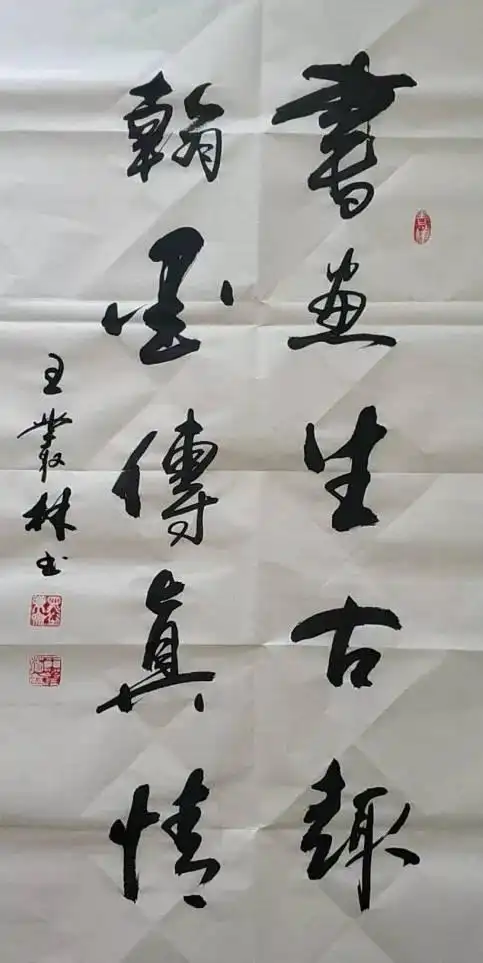 書畫生古趣
翰墨傳真情
王叢林书